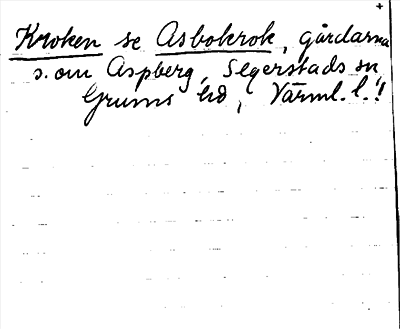 +
Kroken se Asbokrok, gårdarna
s. om Aspberg, Segerstads sn
Grums hd, Värml. l.!